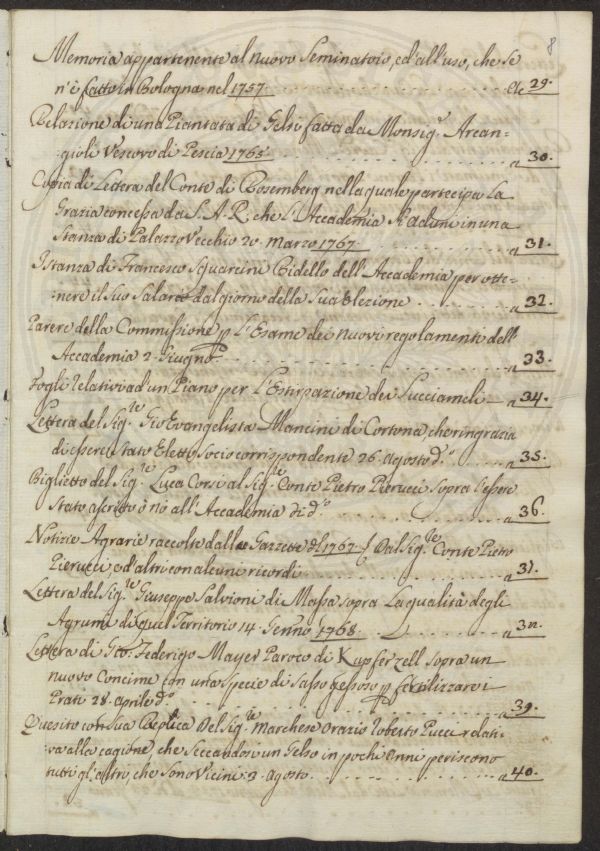 8
Memoria appartenente al nuovo Seminatoio, ed all'uso, che se
n'è fatto in Bologna nel 1757. Ac 29.
Relazione di una Piantata di Gelsi fatta da Monsig.r Arcan=
gioli Vescovo di Pescia 1765. a 30.
Copia di Lettera del Conte di Rosemberg nella quale partecipa la
Grazia concessa da S. A. R. che l'Accademia si aduni in una
Stanza di Palazzo Vecchio 20. Marzo 1767. a 31.
Istanza di Francesco Squarcini Bidello dell'Accademia per otte=
nere il suo Salario dal giorno della Sua Elezione a 32.
Parere della Commissione p l'Esame dei nuovi regolamenti dell'
Accademia 2. Giugno a 33.
Fogli relativi ad un Piano per l'Estirpazione dei Succiameli a 34.
Lettera del Sig.re Gio Evangelista Mancini di Cortona che ringrazia
di essere stato Eletto Socio corrispondente 26. Agosto d.o a 35.
Biglietto del Sig.re Luca Corsi al Sig.re Conte Pietro Pierucci sopra l'essere
stato ascritto ò nò all'Accademia di d.o a 36.
Notizie Agrarie raccolte dalle Gazzette del 1767. Dal Sig.re Conte Pietro
Pierucci, ed altri con alcuni ricordi a 37.
Lettera del Sig.re Giuseppe Salvioni di Massa sopra la qualità degli
Agrumi di quel Territorio 14. Genn.o 1768. a 38.
Lettera di Gio: Federigo Mayer Paroco di Kupferzell sopra un
nuovo Concime con una specie di Sasso Gessoso p fertilizzare i
Prati 28. Aprile d.o a 39.
Quesito con sua Replica Del Sig.re Marchese Orazio Roberto Pucci relati=
va alla cagione, che seccandosi un Gelso in pochi Anni periscono
tutti gl'altri, che sono Vicini 2. Agosto. a 40.